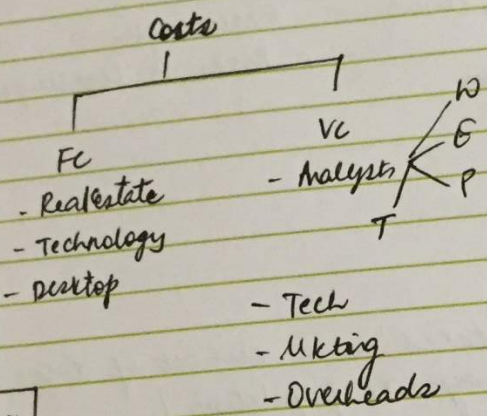 Costs
FC
- Real Estate
- Technology
- Desktop
VC
- Analysts
W
E
P
T
- Tech
- Mkting
- Overheads